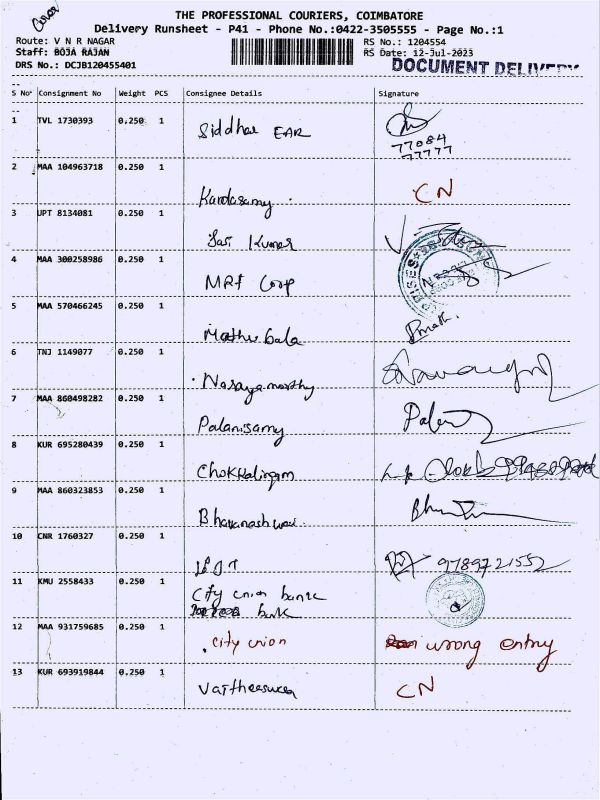 THE PROFESSIONAL COURIERS, COIMBATORE
Delivery Runsheet - P41 - Phone No.:0422-3505555 - Page No.:1
Route: V N R NAGAR RS No.: 1204554
Staff: BOJA RAJAN RS Date: 12-Jul-2023
DRS No.: DCJB120455401 DOCUMENT DELIVERY
S No Consignment No Weight PCS Consignee Details Signature
1 TVL 1730393 0.250 1
Siddhar EAR
77084
77777
2 MAA 104963718 0.250 1
Kandasamy CN
3 UPT 8134081 0.250 1
Sasi Kumar
4 MAA 300258986 0.250 1
MRF Corp
5 MAA 570466245 0.250 1
Mathu bala
6 TNJ 1149077 0.250 1
Narayamorthy
7 MAA 860498282 0.250 1
Palanisamy Palani
8 KUR 695280439 0.250 1
Chokkalingam
9 MAA 860323853 0.250 1
Bhavanashwari
10 CNR 1760327 0.250 1
9789721552
11 KMU 2558433 0.250 1
City union bank
bank
12 MAA 931759685 0.250 1
City union wrong entry
13 KUR 693919844 0.250 1
Vaitheeswara CN